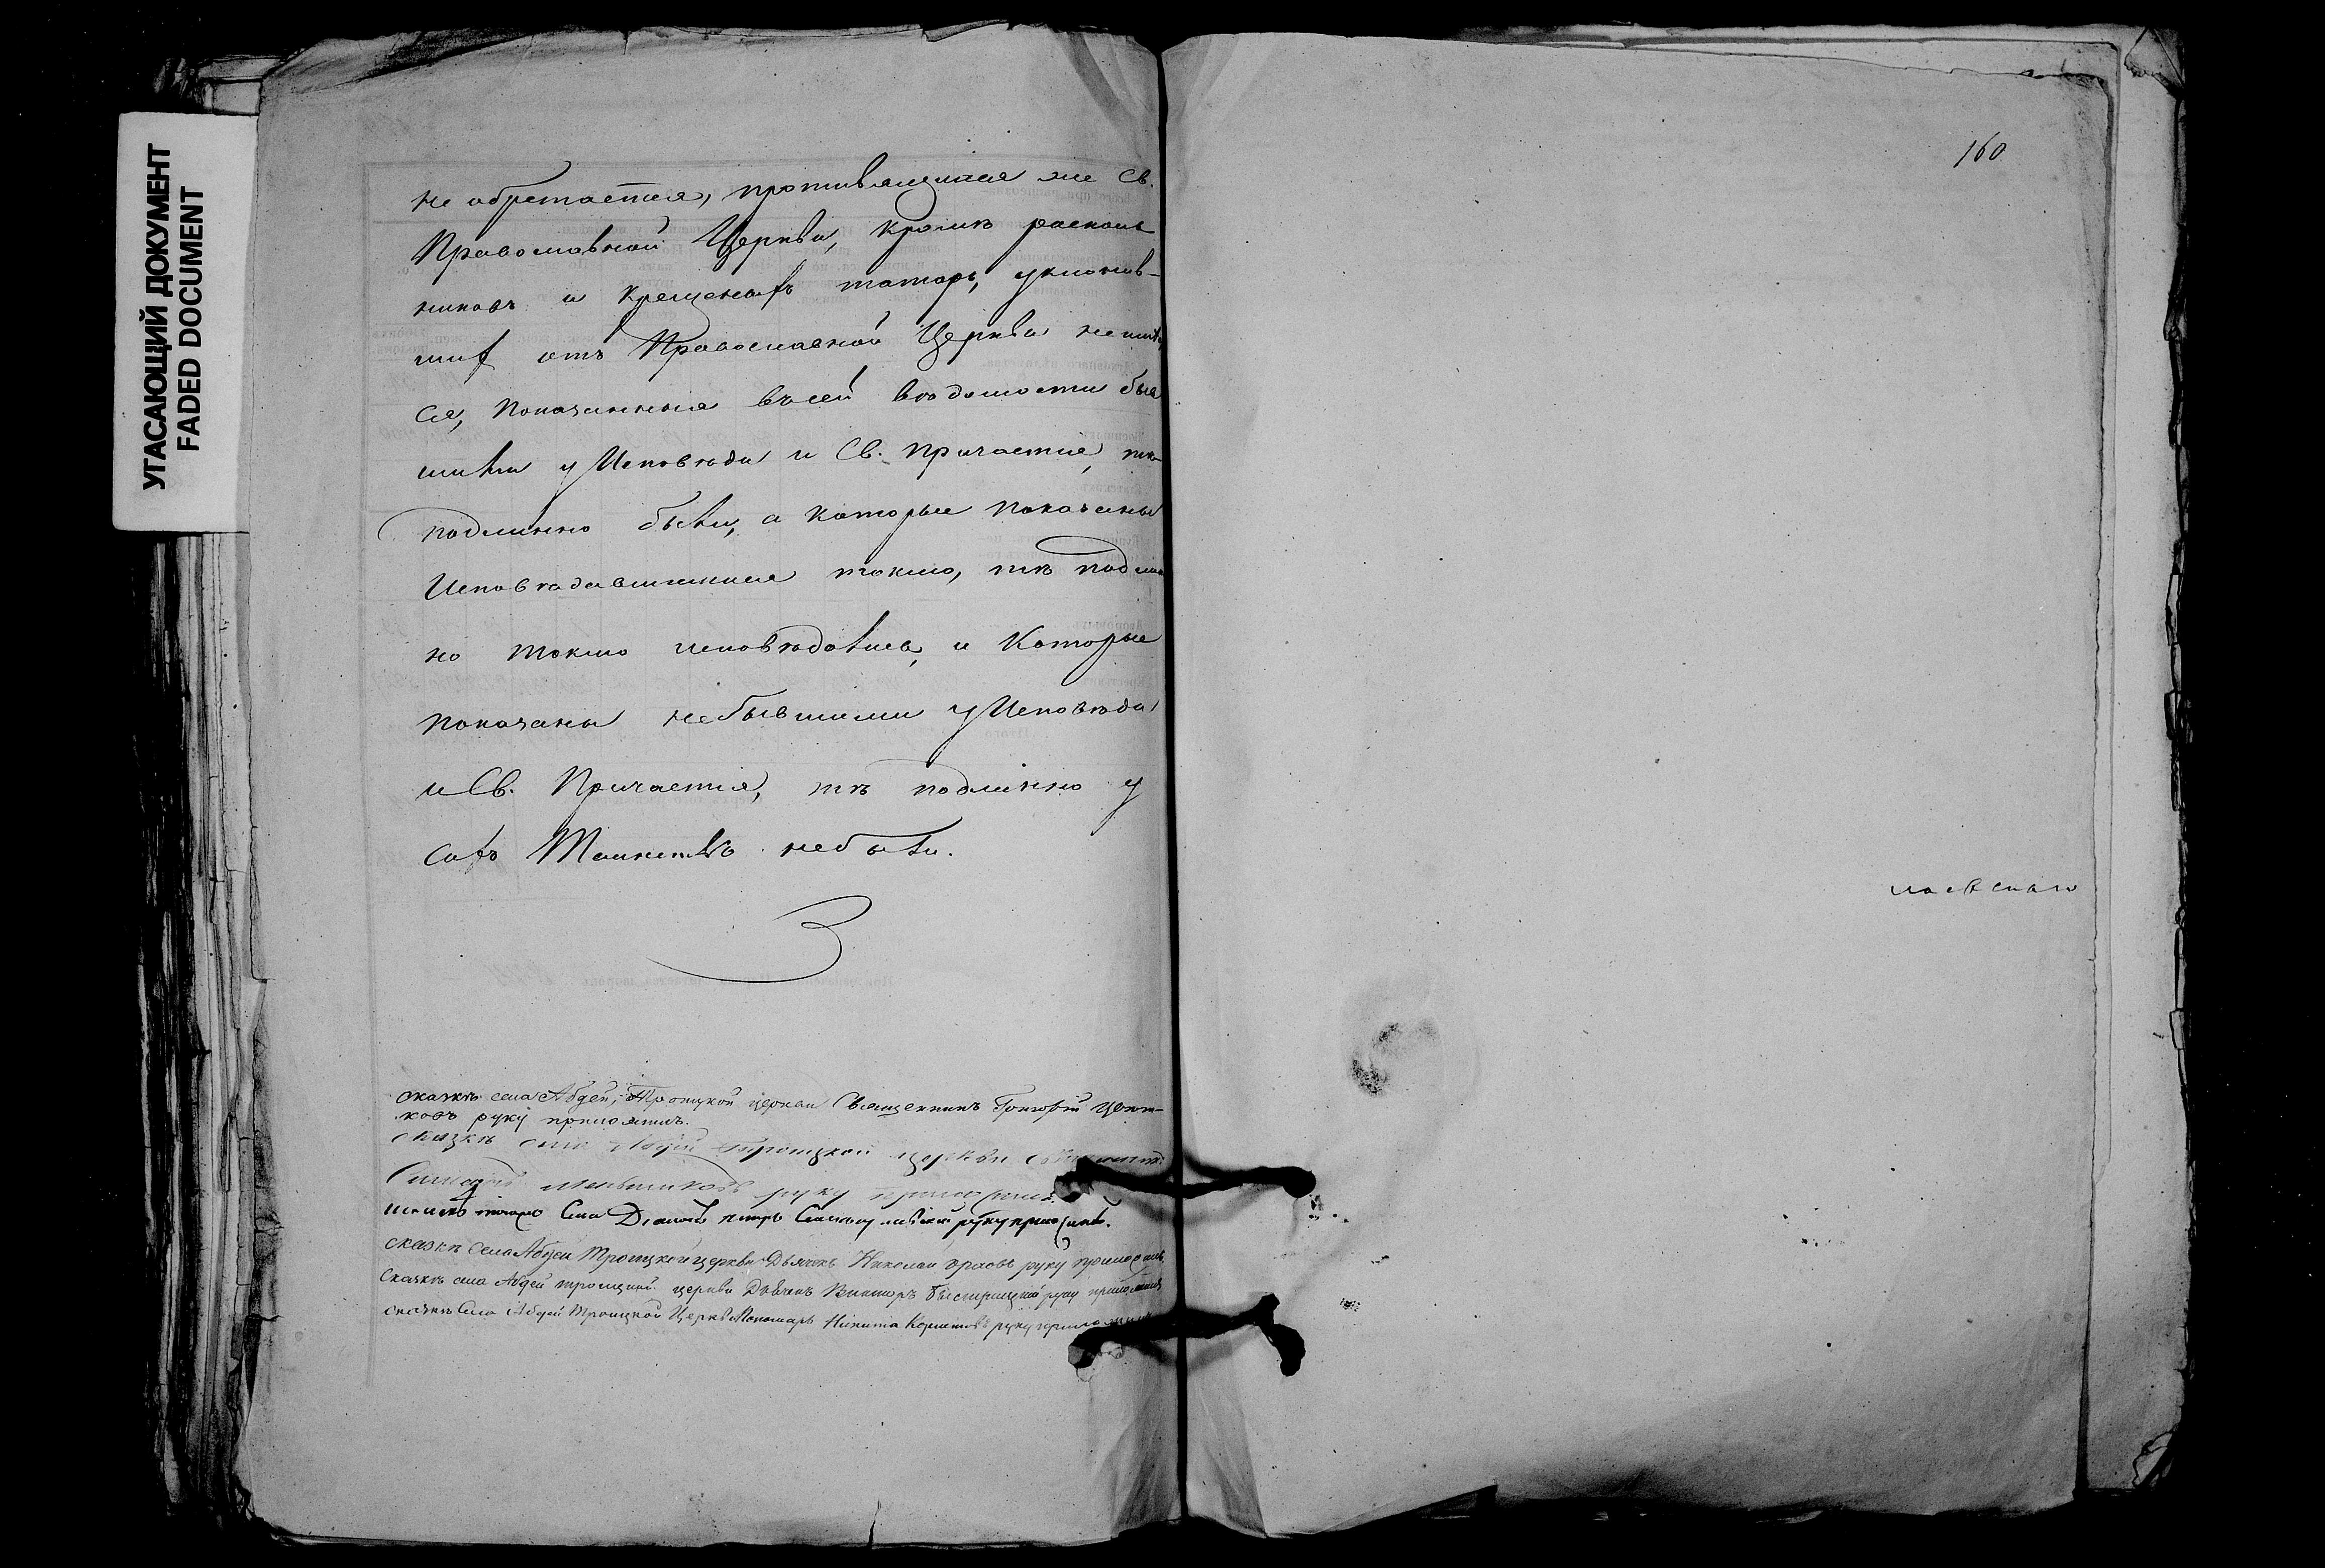 УГАСАЮЩИЙ ДОКУМЕНТ
FADED DOCUMENT
не обретается, противящихся же Св.
Православной Церкви, кромѣ расколь
никовъ и крещеныхъ татаръ, уклонив-
ших отъ Православной Церкви
ся, показанныя въ сей вѣдомости быв
шими у Исповѣди и Св. Причастія, тѣ
подлинно были, а которые показаны
Исповѣдавшимися токмо, тѣ подлин
но токмо исповѣдались, и которые
показаны небывшими у Исповѣди
и Св. Причастія, тѣ подлинно у
сихъ Таинствъ небыли.
сказкѣ села Абдей, Троицкой церкви Священникъ Григорій Цвѣт-
ковъ руку приложилъ.
сказкѣ села Абдей Троицкой церкви
Меньшиковъ руку приложилъ.
села Діаконъ Петръ руку приложилъ.
сказкѣ села Абдей Троицкой церкви Дьячекъ Николай руку приложилъ
Сказкѣ села Абдей троицкой церкви Дьячекъ Викторъ Быстрицкій руку приложилъ
сказкѣ Села Абдей Троицкой Церкви Пономарь Никита руку приложилъ
160